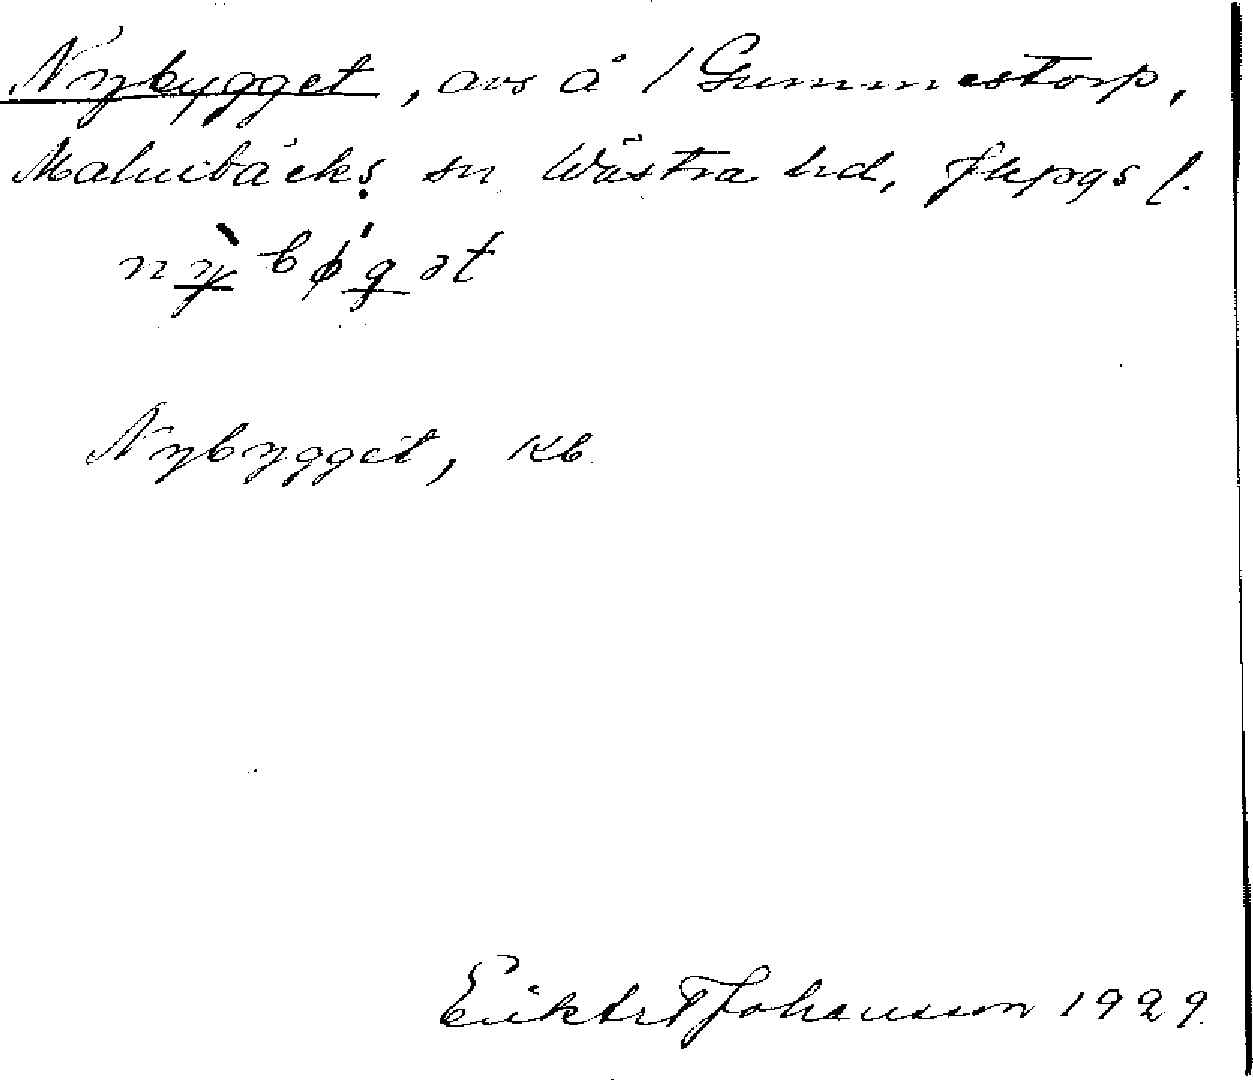 Nybygget, avs å / Gummestorp,
Malmbäcks sn Västra hd, Jkpgs l.
nỳbǿgət
Nybygget, Kb.
Johansson 1929.